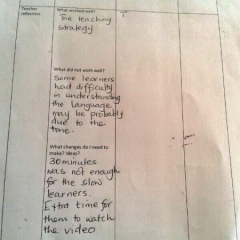 Teacher reflection
What worked well?
The teaching
strategy
What did not work well?
Some learners
had difficulty
in understanding
the language
may be probably
due to the
tone.
What changes do I need to
make? Ideas?
30minutes
was not enough
for the slow
learners.
Extra time for
them to watch
the video